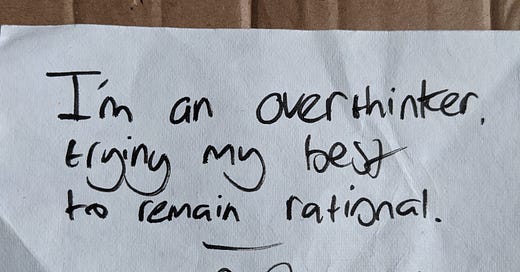 I'm an overthinker,
trying my best
to remain rational.